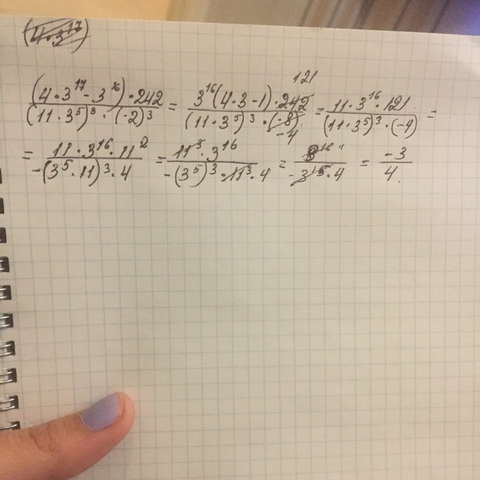 (4·3¹⁷)
(4·3¹⁷-3¹⁶)·242 / (11·3⁵)³·(-2)³ = 3¹⁶(4·3-1)·242 121 / (11·3⁵)³·(-8) -4 = 11·3¹⁶·121 / (11·3⁵)³·(-4) =
= 11·3¹⁶·11² / -(3⁵·11)³·4 = 11³·3¹⁶ / -(3⁵)³·11³·4 = 3¹⁶ ¹ / -3¹⁵·4 = -3 / 4